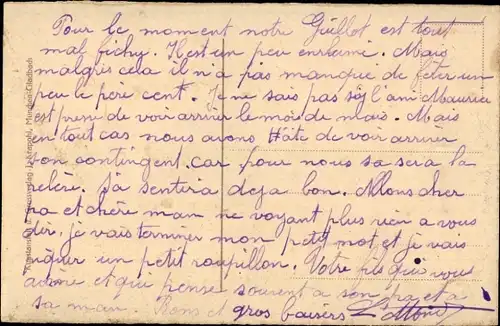 Pour le moment notre est tout
mal fichu. Il est un peu enrhumé. Mais
malgrés cela il n'a pas manque de fêter un
peu le père cent. Je ne sais pas si l'ami Maurice
est presse de voir arriver le mois de mais. Mais
en tout cas nous avons Hâte de voir arriver
son contingent. car pour nous sa sera la
relève. Sa sentira deja bon. Allons cher
pa et chère man ne voyant plus rien a vous
dir. je vais terminer mon petit mot et je vais
piquer un petit roupillon. Votre fils qui vous
adore et qui pense souvent a son pa et a
sa man. Bons et gros baisers